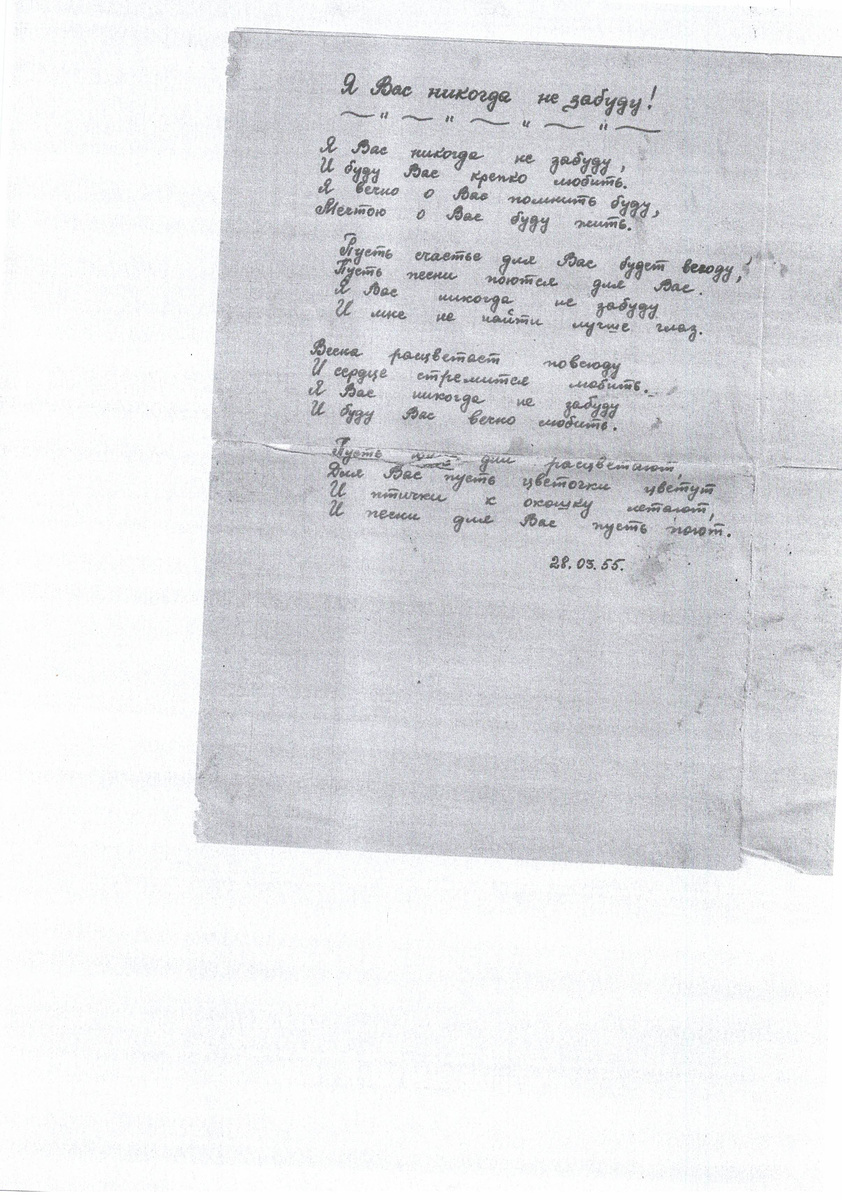 Я Вас никогда не забуду!
Я Вас никогда не забуду,
И буду Вас крепко любить.
Я вечно о Вас помнить буду,
Мечтою о Вас буду жить.
Пусть счастье для Вас будет всюду,
Пусть песни поются для Вас.
Я Вас никогда не забуду
И мне не найти лучше глаз.
Весна расцветает повсюду
И сердце стремится любить.
Я Вас никогда не забуду
И буду Вас вечно любить.
Пусть дни расцветают,
Для Вас пусть цветочки цветут
И птички к окошку летают,
И песни для Вас пусть поют.
28.03.55.